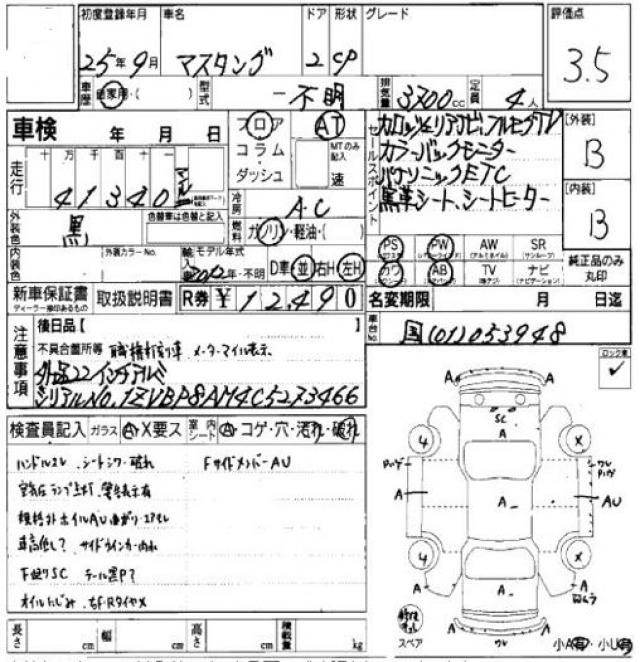 初度登録年月 車名 ドア 形状 グレード 評価点
25年9月 マスタング 2 CP 3.5
車歴 自家用・( ) 型式 -不明 排気量 3700cc 定員 4人
車検 年 月 日
フロア AT
コラム・ダッシュ MTのみ記入 速
セールスポイント
カロッツェリアナビ、フルセグTV
カラーバックモニター
パナソニックETC
黒革シート、シートヒーター
[外装] B
[内装] B
走行 十万千百十一
41340 マイル
冷房 A.C
外装色 黒 色替車は色替と記入
燃料 ガソリン・軽油・( )
PS PW AW SR
(パワステ) (パワーウインドウ) (アルミホイル) (サンルーフ)
カワ AB TV ナビ
(エアバック) (ナビゲーション)
純正品のみ丸印
内装色 外装カラーNo. 輸入車 モデル年式 2012年・不明 D車 並 右H 左H
新車保証書 取扱説明書 R券 ¥12,490 名変期限 月 日迄
ディーラー捺印あるもの
注意事項
後日品【
車台No. 国(01)053948
不具合箇所等 職権打刻車 メーターマイル表示
外品22インチアルミ
シリアルNO.1ZVBP8AM4C5273466
ロック車 ✓
検査員記入 ガラス A・X要ス 室内シート A・コゲ・穴・汚れ・破れ
ハンドルスレ シートシワ・破れ FサイドメンバーAU
空気圧ランプ点灯 警告表示有
規格外ホイルAU曲がり・エアモレ
車高低し? サイドウインカー内れ
下廻りSC テール黒P?
オイルにじみ 右F・RタイヤX
A A
SC
A
4 X
A A AU
4 X
A A
スペア
小A有・小U有
長さ cm 幅 cm 高さ cm 積載量 kg